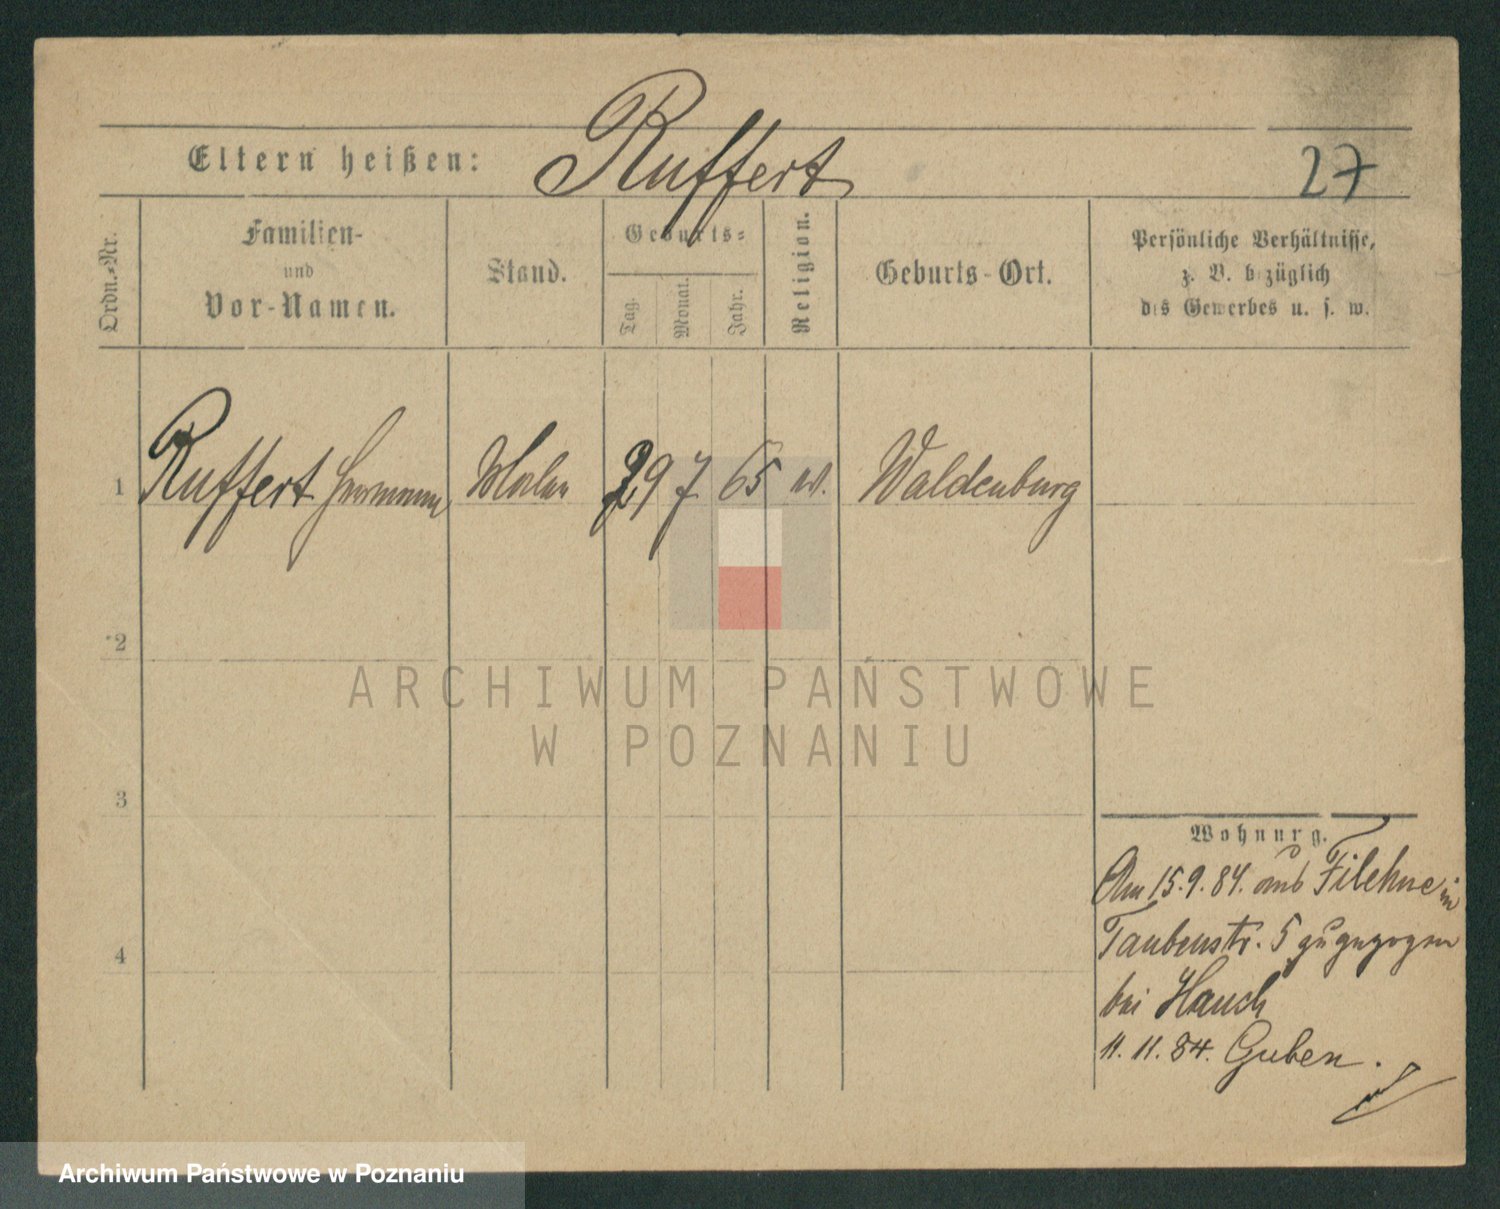 Eltern heißen: Ruffert 27
Ordn.-Nr.
Familien-
und
Vor-Namen.
Stand.
Geburts-
Tag.
Monat.
Jahr.
Religion.
Geburts-Ort.
Persönliche Verhältnisse,
z. B. bezüglich
des Gewerbes u. s. w.
1 Ruffert Hermann Maler 29 7 65 ev. Waldenburg
2
3
4
Wohnung.
Am 15.9.84. aus Filehne in
Taubenstr. 5 zugezogen
bei Hauch
11. 11. 84. Guben.
ARCHIWUM PAŃSTWOWE
W POZNANIU
Archiwum Państwowe w Poznaniu